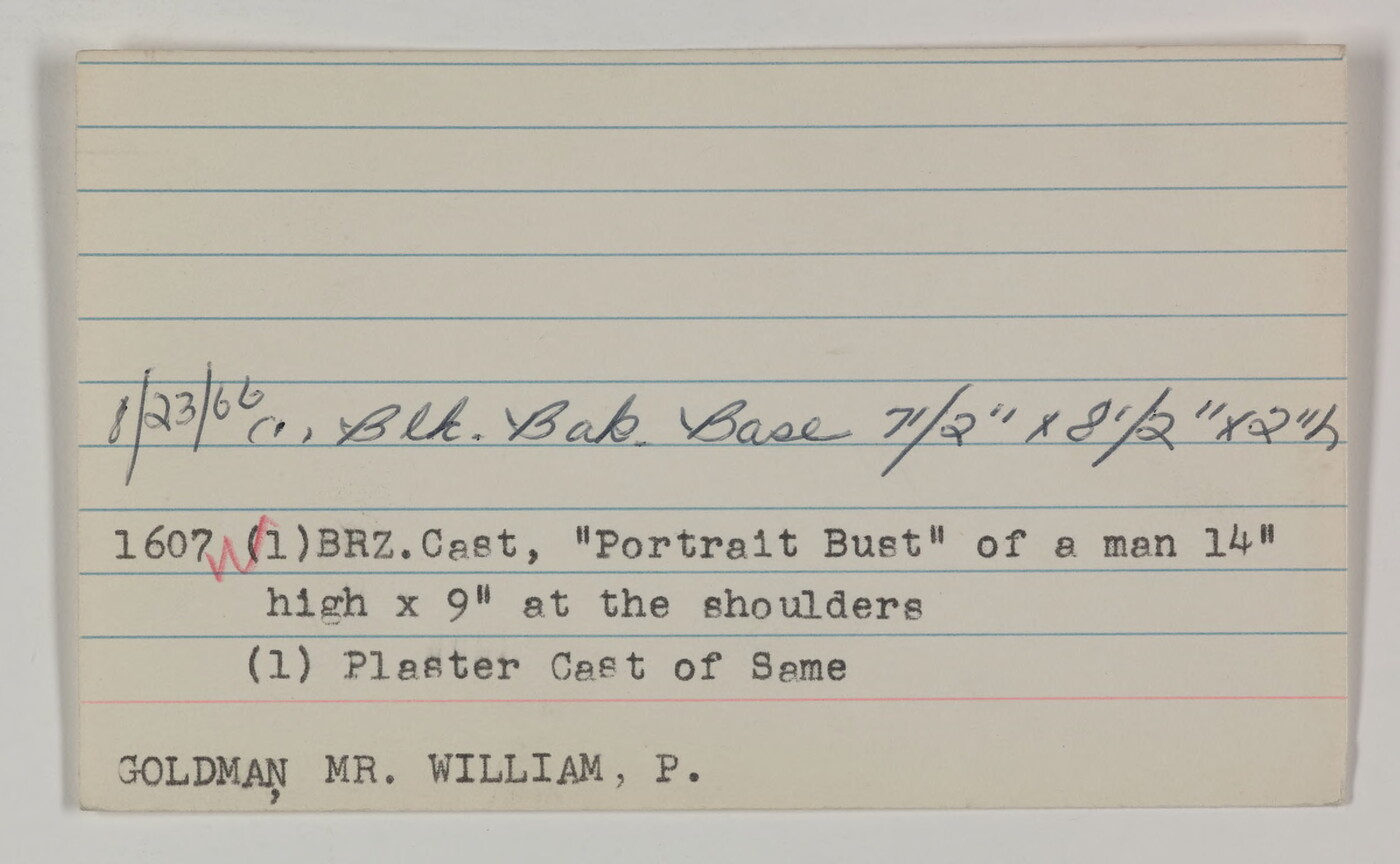 8/23/66 (1), Blk. Bak. Base 7 1/2" x 8 1/2" x 2" h
1607 (1)BRZ.Cast, "Portrait Bust" of a man 14"
high x 9" at the shoulders
(1) Plaster Cast of Same
GOLDMAN, MR. WILLIAM, P.